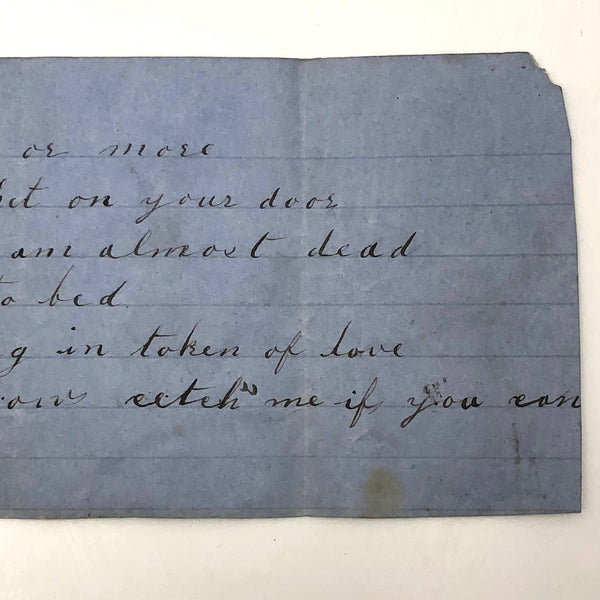 or more
on your door
am almost dead
to bed
g in token of love
cetch me if you can